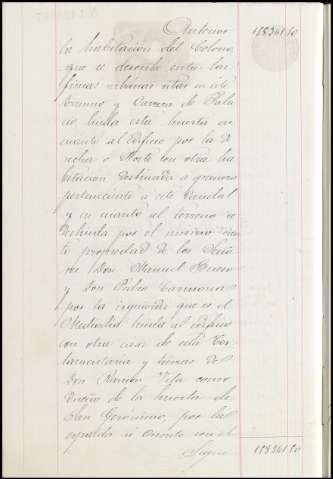 Anterior 118361,50
la habitacion del Colono
que se describe entre las
fincas urbanas sitas en este
termino y Carrera de Pala
cio, linda esta huerta en
cuanto al edificio por la De
recha o Norte con otra ha
bitacion destinada a granero
perteneciente a este Caudal
y en cuanto al terreno de
por el mismo vien
to propiedad de los Seño
res Don Manuel Bueno
y Don Pedro Carmona
por la izquierda que es el
Mediodia linda el edificio
con otra casa de esta tes
tamentaria y tierras de
Don Ramon Vesa como
dueño de la huerta de
San Geronimo, por la
espalda u Oriente con el
Sigue 118361,50